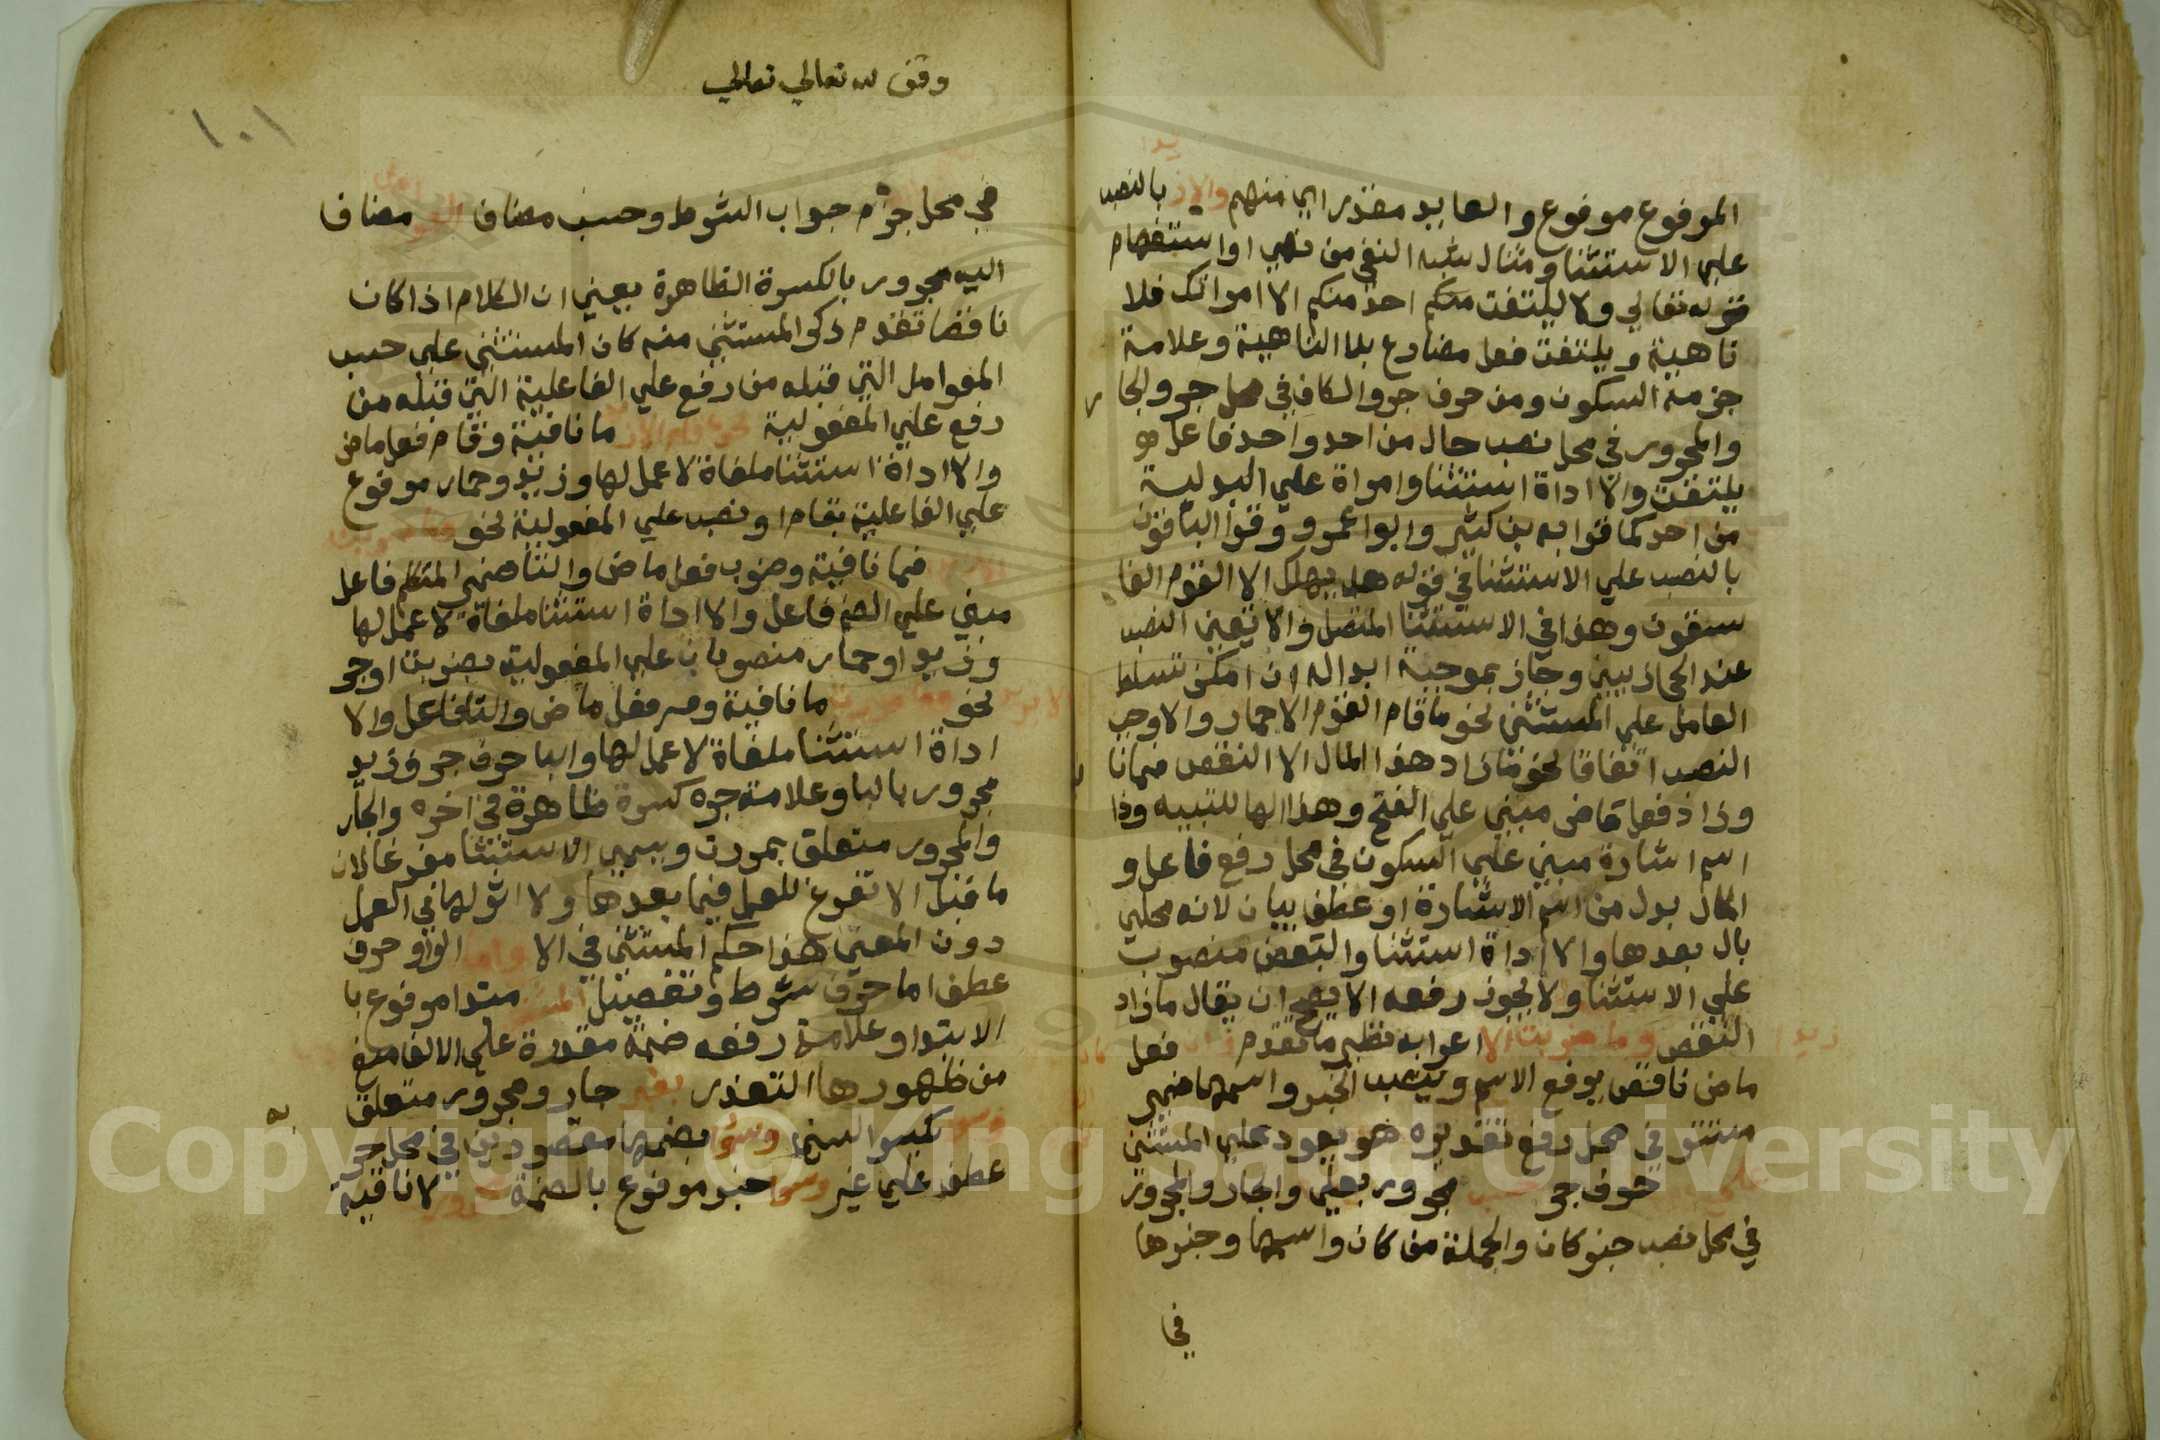 المرفوع مرفوع والعايد مقدر اي منهم والا زيدا بالنصب
علي الاستثنا ومثال شبه النفي من نهي او استفهام
قوله تعالي ولا يلتفت منكم احد منكم الا امراتك فلا
ناهية ويلتفت فعل مضارع بلا الناهية وعلامة
جزمه السكون ومن حرف جر والكاف في محل جر والجار
والمجرور في محل نصب حال من احد واحد فاعل هو
يلتفت والا اداة استثنا وامراة علي البدلية
من احد كما قرا به بن كثير وابوا عمرو وقرا الباقون
بالنصب علي الاستثنا في قوله هل يهلك الا القوم الفا
سقون وهذا في الاستثنا المتصل والا تعين النصب
عند الحجازيين وجاز بموجبه ابداله ان امكن تسلط
العامل علي المستثني نحو ما قام القوم الا حمار والا وجب
النصب اتفاقا نحو ما زاد هذا المال الا النقص فما نا
وزاد فعل ماض مبني علي الفتح وهذا الها للتنبيه وذا
اسم اشارة مبني علي السكون في محل رفع فاعل و
المال بدل من اسم الاشارة او عطف بيان لانه محلي
بال بعدها والا اداة استثنا والنقص منصوب
علي الاستثنا ولا يجوز رفعه الا يصح ان يقال ما زاد
النقص وما ضربت الا زيدا اعرابه نظير ما تقدم فعل
ماض ناقص يرفع الاسم وينصب الخبر واسمها ضمير
مستتر في محل رفع تقديره هو يعود علي المستثني
علي حرف جر حسب مجرور بعلي والجار والمجرور
في محل نصب خبر كان والجملة من كان واسمها وخبرها
في
وقف لله تعالي تعالي
١٠١
في محل جزم جواب الشرط وحسب مضاف مضاف
اليه مجرور بالكسرة الظاهرة يعني ان الكلام اذا كان
ناقصا تقدم ذكر المستثني منه كان المستثني علي حسب
العوامل التي قبله من رفع علي الفاعلية التي قبله من
رفع علي المفعولية نحو ما قام الا ما نافية وقام فعل ماض
والا اداة استثنا ملغاة لا عمل لها وزيد وحمار مرفوع
علي الفاعلية بقام او نصب علي المفعولية نحو
فما نافية وضرب فعل ماض والتا ضمير المتكلم فاعل
مبني علي الضم فاعل والا اداة استثنا ملغاة لا عمل لها
وزيدا وحمار منصوبان علي المفعولية بضربت او جر
نحو ما مررت الا بزيد ما نافية ومر فعل ماض والتا فاعل والا
اداة استثنا ملغاة لا عمل لها والبا حرف جر وزيد
مجرور بالبا وعلامة جره كسرة ظاهرة في اخره والجار
والمجرور متعلق بمررت ويسمي الاستثنا مفرغا لان
ما قبل الا تفرغ للعمل فيما بعدها ولا اثر لها في العمل
دون المعني هذا حكم المستثني في الا واما الواو حرف
عطف اما حرف شرط وتفصيل المستثني مبتدا مرفوع با
الابتدا وعلامة رفعه ضمة مقدرة علي الالف منع
من ظهورها التعذر بغير جار ومجرور متعلق
وسوي بكسر السين وسوي بضمها مقصورين في محل جر
عطف علي غير وسوا خبر مرفوع بالضمة لا نافية